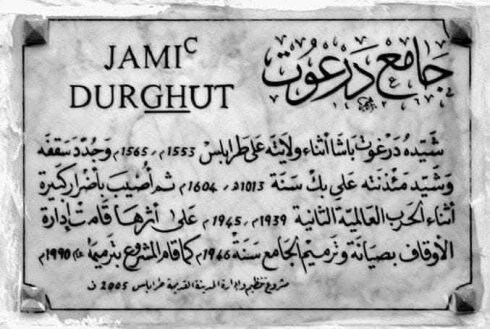 JAMIᶜ
DURGHUT
جَامع دَرْغوُت
شَيّده دَرْغوت باشا أثناء ولايته على طرابلس 1553م ،1565م وَجُدّد سَقفه
وَشيّد مئذنته علي بك سَنة 1013هـ 1604م ثم أُصيبَ بأضرار كبيرة
أثناء الحَرب العالمية الثانية 1939م ،1945م على أثرهَا قامَت إدارة
الأوقاف بصيانة وترميم الجامع سَنة 1946م كما قام المشروع بترميمه عام 1990م
مشروع تنظيم وإدارة المدينة القديمة طرابلس 2005 ف